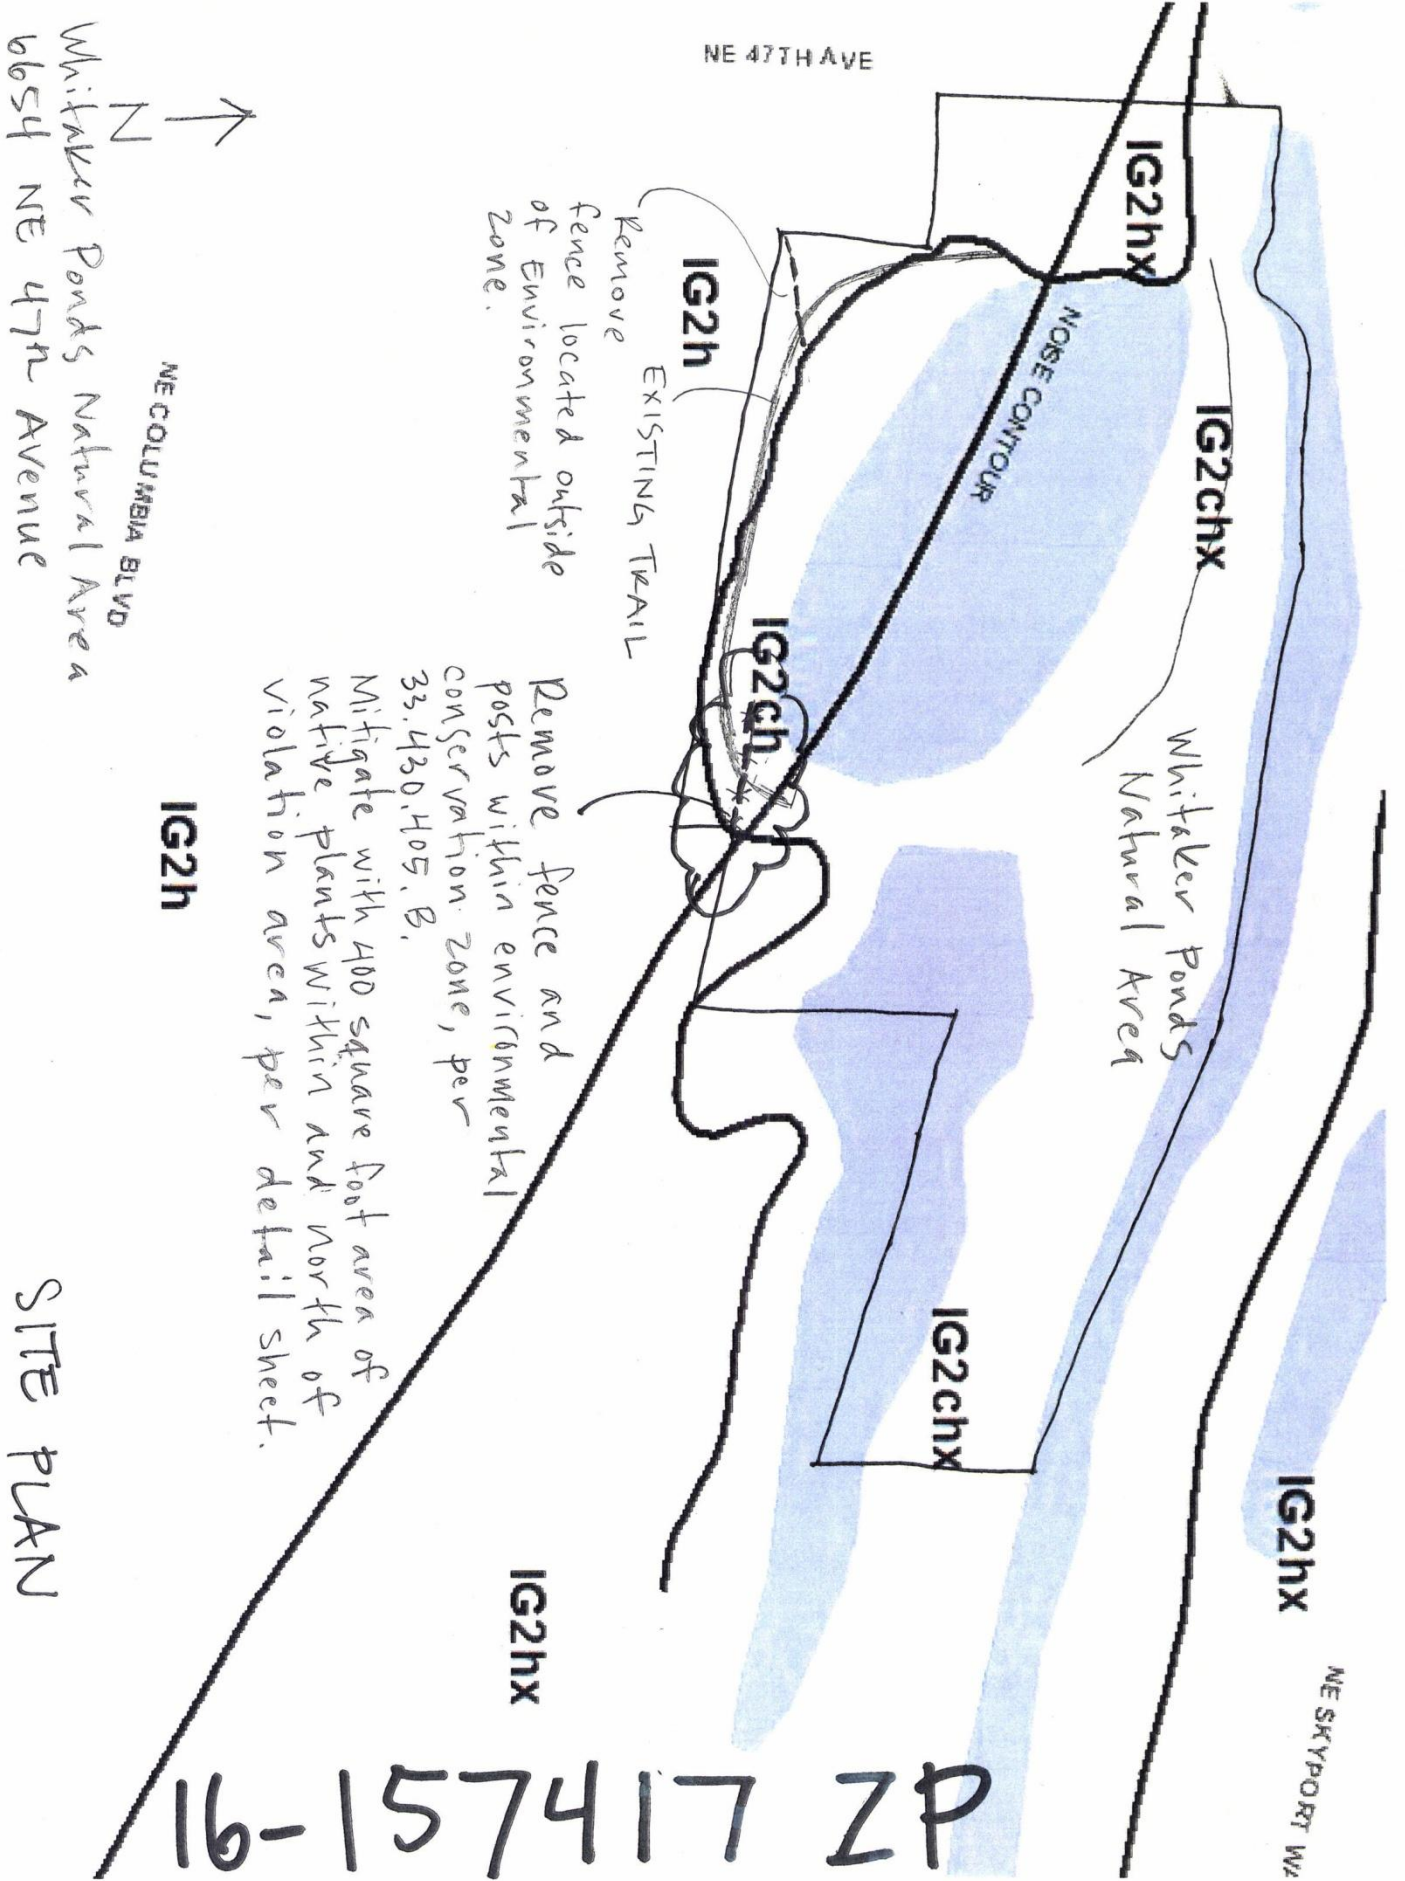 NE 47TH AVE
IG2hx
IG2chx
NOISE CONTOUR
Whitaker Ponds
Natural Area
NE SKYPORT
IG2hx
IG2h
IG2ch
IG2chx
Remove
fence located outside
of Environmental
zone.
EXISTING TRAIL
Remove fence and
posts within environmental
conservation zone, per
33.430.405.B.
Mitigate with 400 square foot area of
native plants within and north of
violation area, per detail sheet.
IG2hx
NE COLUMBIA BLVD
IG2h
N
Whitaker Ponds Natural Area
6654 NE 47th Avenue
SITE PLAN
16-157417 ZP